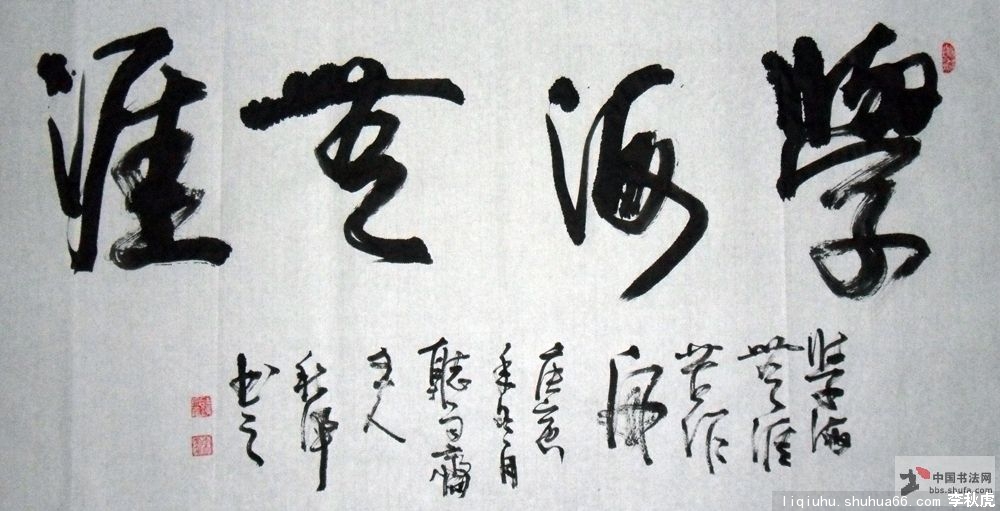 學海無涯
學海
無涯
苦作
舟
庚寅
年冬月
聽雨齋
主人
秋虎
书之
中国书法网
bbs.shufa.com
liqiuhu.shuhua66.com 李秋虎